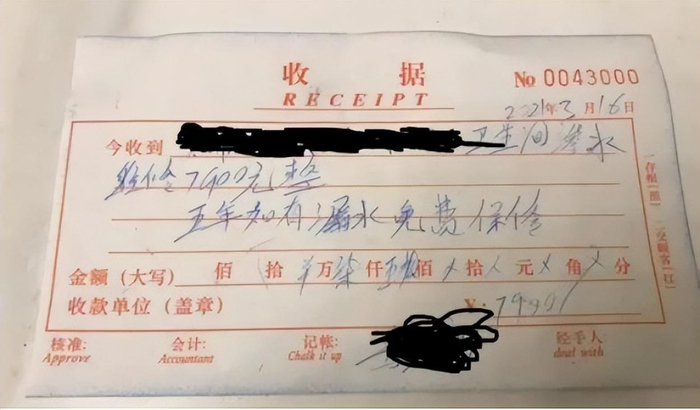 收 据
RECEIPT
No 0043000
2021年3月16日
今收到 卫生间渗水
维修7900元整
五年如有漏水免费保修
金额（大写） 佰 拾 万柒仟 佰 拾 元 角 分
收款单位（盖章） ¥：7900
核准： 会计： 记帐： 经手人
Approve Accountant Chalk it up deal with
一存根(黑) 二交顾客(红)